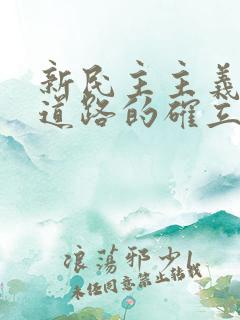 新民主主義
道路的確立
浪蕩邪少1
未经同意禁止转载